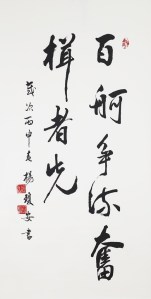 百舸争流奋
楫者先
岁次丙申夏杨
书